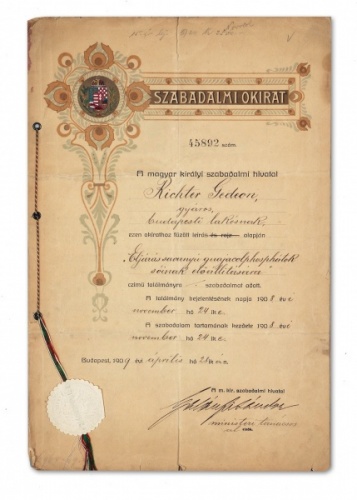 SZABADALMI OKIRAT
45892 szám.
A magyar királyi szabadalmi hivatal
Richter Gedeon,
gyáros,
budapesti lakosnak,
ezen okirathoz fűzött leírás és rajz alapján
„Eljárás savanyú guajacolphosphátok
sóinak előállítására"
című találmányra szabadalmat adott.
A találmány bejelentésének napja 1908 évi
november hó 24 ike.
A szabadalom tartamának kezdete 1908 évi
november hó 24 ike.
Budapest, 1909 évi április hó 28 án.
A m. kir. szabadalmi hivatal